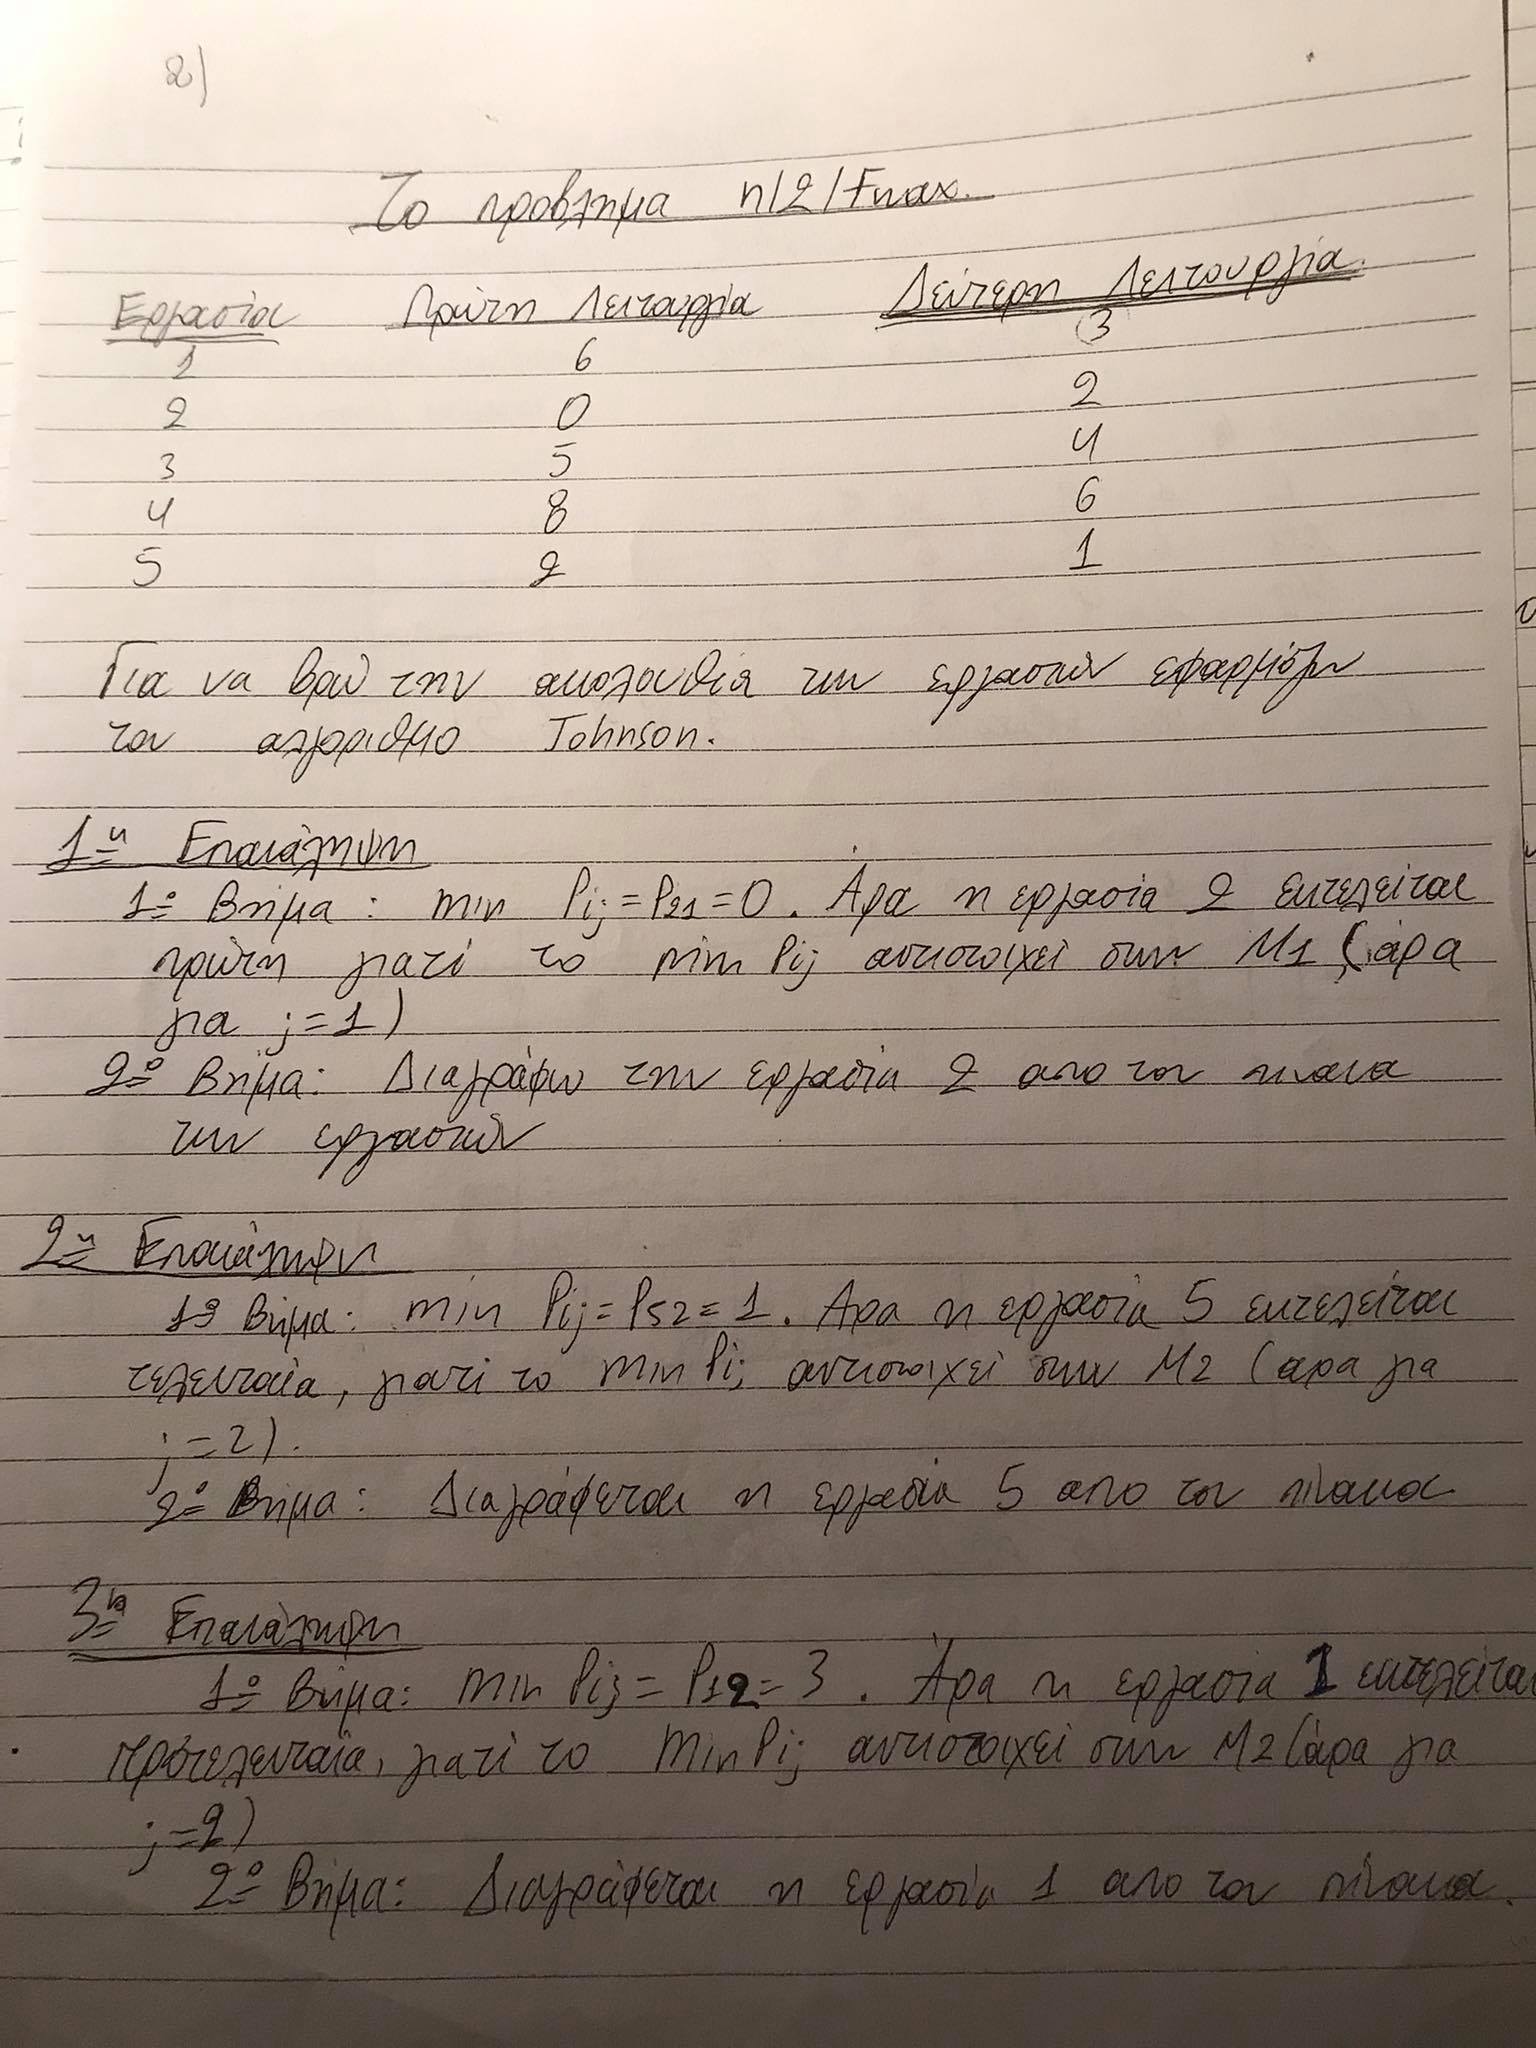 2)
Το πρόβλημα n/2/Fmax.
Εργασία Πρώτη Λειτουργία Δεύτερη Λειτουργία
1 6 3
2 0 2
3 5 4
4 8 6
5 2 1
Για να βρω την ακολουθία των εργασιών εφαρμόζω
τον αλγόριθμο Johnson.
1η Επανάληψη
1ο Βήμα: min Pij = P21 = 0. Άρα η εργασία 2 εκτελείται
πρώτη γιατί το min Pij αντιστοιχεί στην M1 (άρα
για j=1)
2ο Βήμα: Διαγράφω την εργασία 2 απο τον πίνακα
των εργασιών
2η Επανάληψη
1ο Βήμα: min Pij = P52 = 1. Άρα η εργασία 5 εκτελείται
τελευταία, γιατί το min Pij αντιστοιχεί στην M2 (αρα για
j=2).
2ο Βήμα: Διαγράφεται η εργασία 5 απο τον πίνακα
3η Επανάληψη
1ο Βήμα: min Pij = P12 = 3. Άρα η εργασία 1 εκτελείται
προτελευταία, γιατί το min Pij αντιστοιχεί στην M2 (άρα για
j=2)
2ο Βήμα: Διαγράφεται η εργασία 1 απο τον πίνακα.